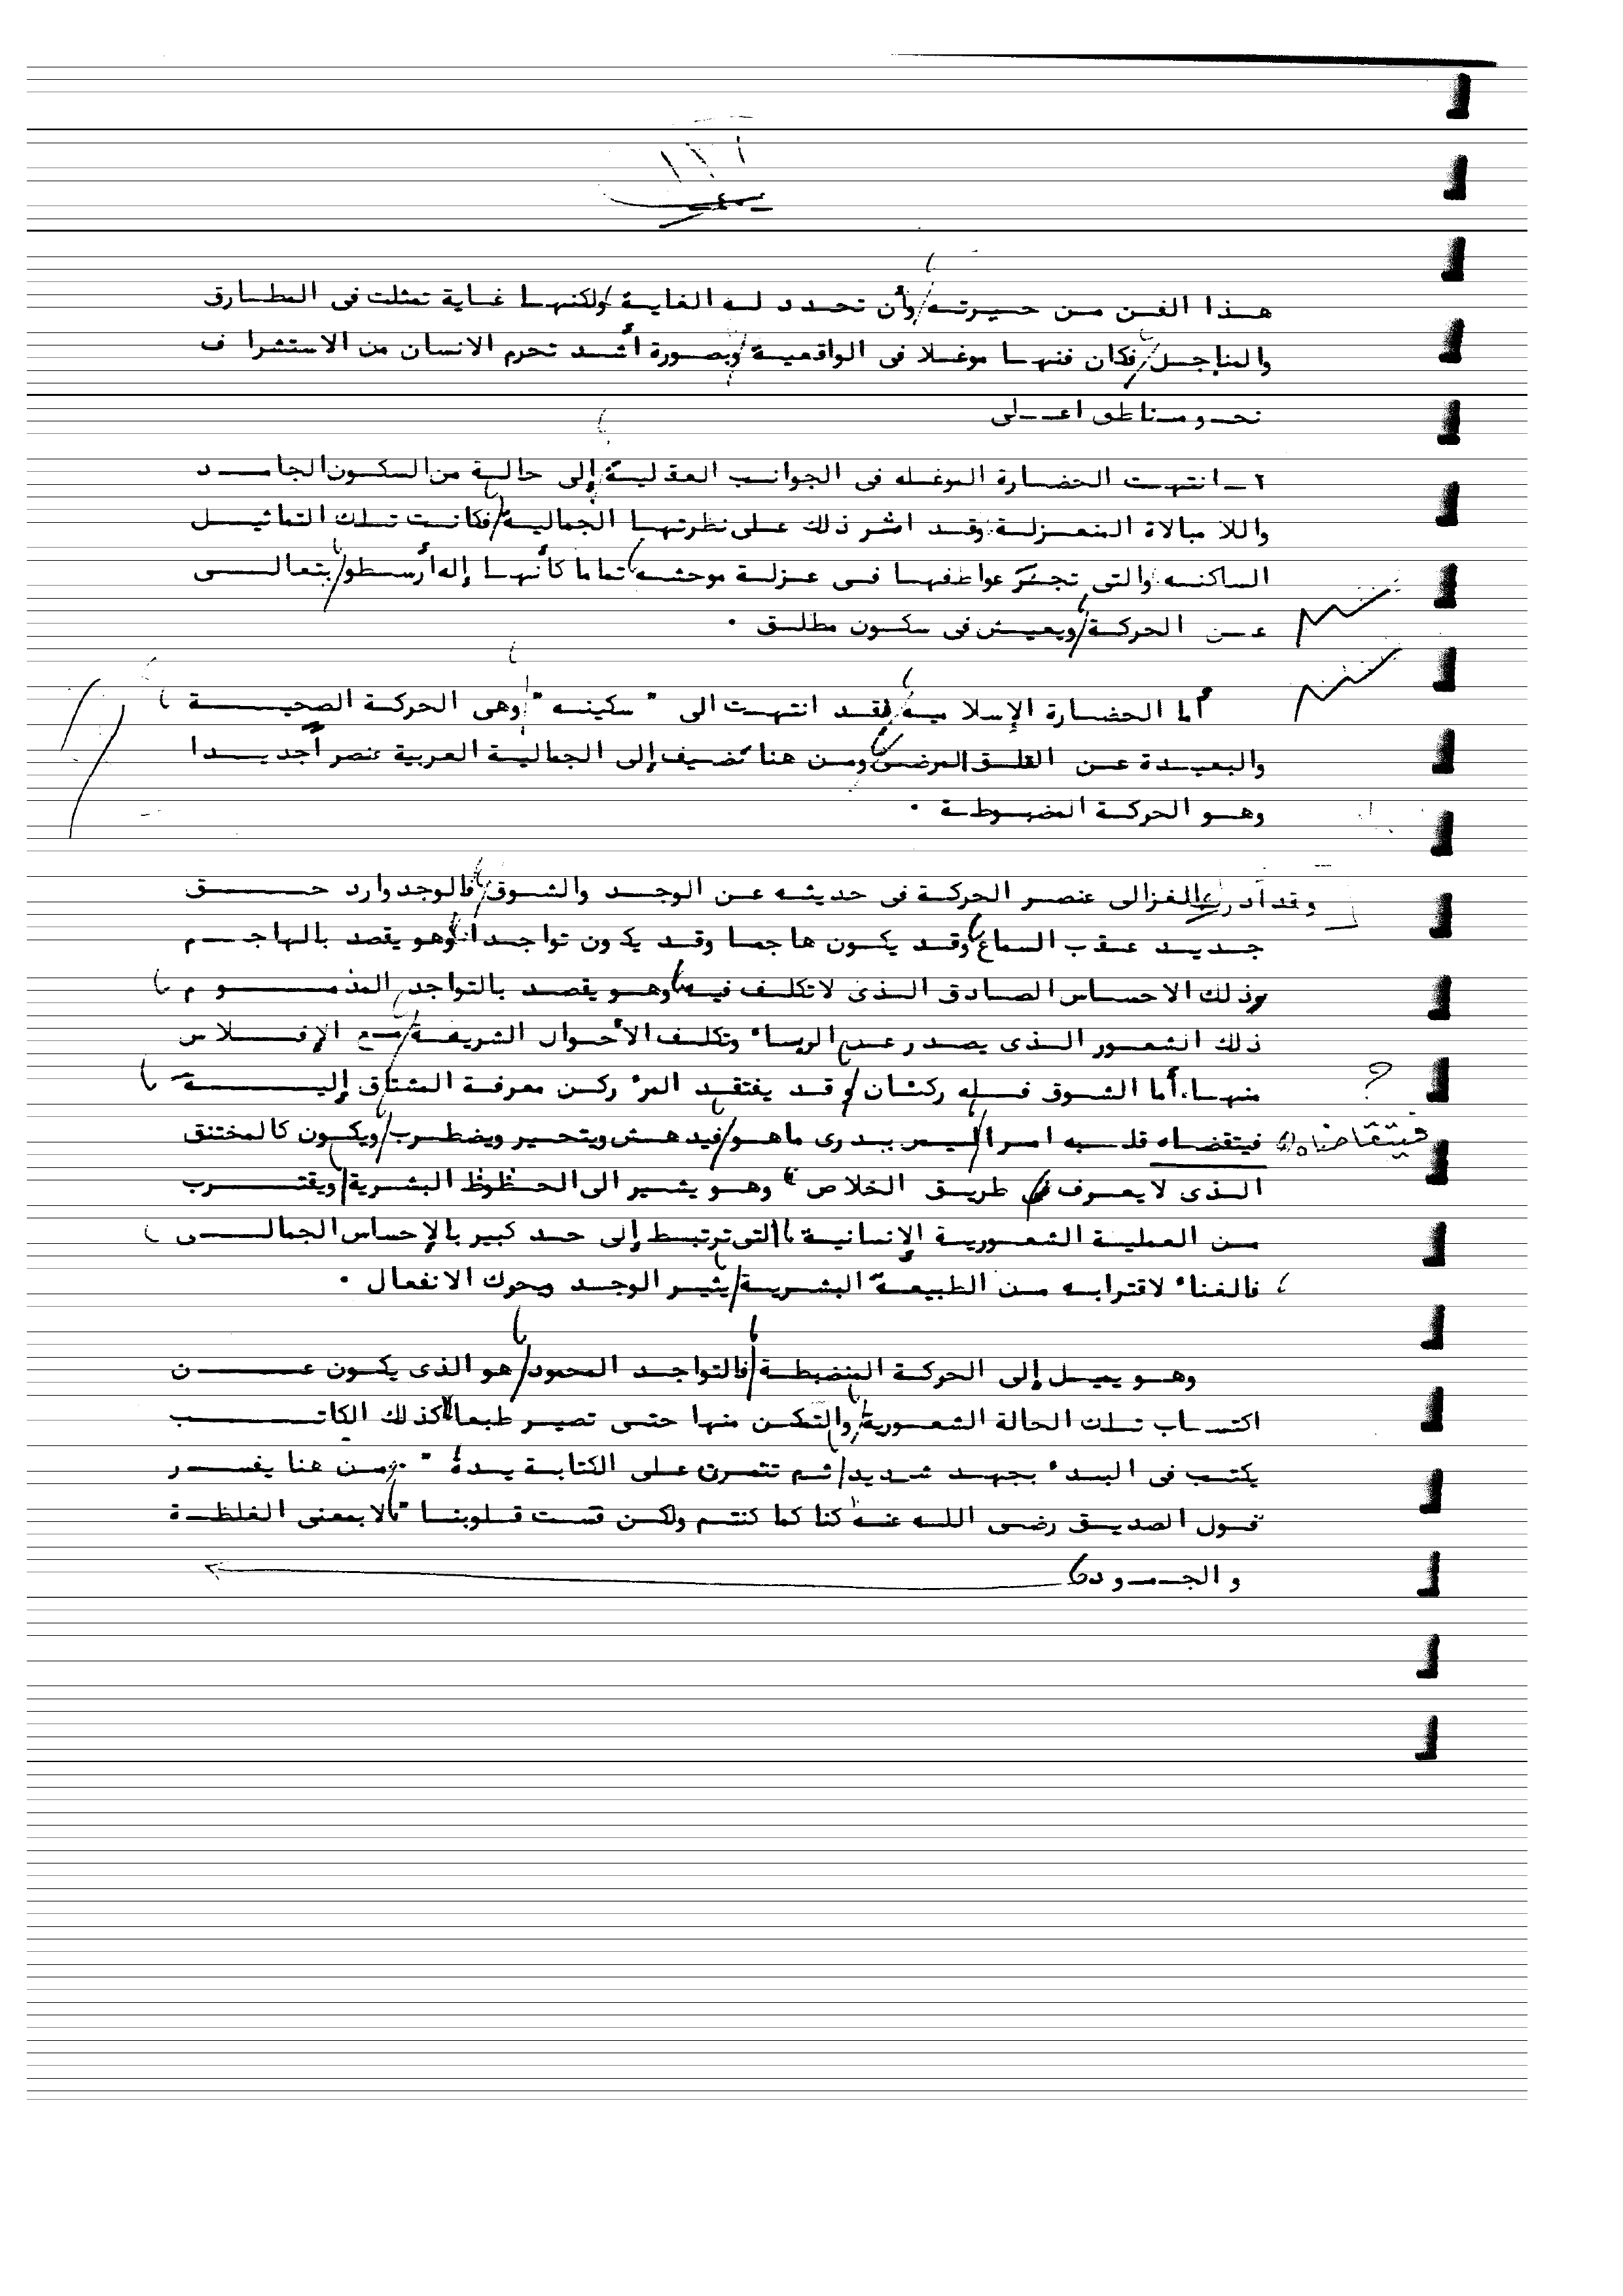 هذا الفن من حيرته، وأن تحدد له الغاية، ولكنها غاية تمثلت فى المطارق
والمناجل، فكان فنها موغلا فى الواقعية، وبصورة أشد تحرم الانسان من الاستشراف
نحو مناطق اعلى
٢ـ انتهت الحضارة الموغله فى الجوانب العقلية، إلى حالة من السكون الجامد
واللا مبالاة المنعزلة، وقد اثر ذلك على نظرتها الجمالية، فكانت تلك التماثيل
الساكنه والتى تجتر عواطفها فى عزلة موحشه، تماما كأنها إله أرسطو، يتعالى
عن الحركة، ويعيش فى سكون مطلق .
أما الحضارة الإسلامية، فقد انتهت الى " سكينه "، وهى الحركة الصحية ،
والبعيدة عن القلق المرضى، ومن هنا نضيف إلى الجمالية العربية عنصر أجديدا
وهو الحركة المضبوطة .
وقد أدرك الغزالى عنصر الحركة فى حديثه عن الوجد والشوق، فالوجد وارد حق
جديد عقب السماع، وقد يكون هاجما وقد يكون تواجدا، وهو يقصد بالهاجم
ذلك الاحساس الصادق الذى لاتكلف فيه، وهو يقصد بالتواجد المذموم ،
ذلك الشعور الذى يصدر عن الرياء وتكلف الأحوال الشريفة، مع الإفلاس
منها، أما الشوق فله ركنان، وقد يفتقد المرء ركن معرفة المشتاق إليه ،
؟
فيتقاضاه
فيتقضاه قلبه امرا ليس يدرى ماهو، فيدهش ويتحير ويضطرب، ويكون كالمختنق
الذى لايعرف طريق الخلاص ، وهو يشير الى الحظوظ البشرية، ويقترب
من العملية الشعورية الإنسانية ، التى ترتبط إلى حد كبير بالإحساس الجمالى ،
، فالغناء لاقترابه من الطبيعة البشرية، يثير الوجد ويحرك الانفعال .
وهو يميل إلى الحركة المنضبطة، فالتواجد المحمود، هو الذى يكون عن
اكتساب تلك الحالة الشعورية، والتمكن منها حتى تصير طبعا " كذلك الكاتب
يكتب فى البدء بجهد شديد، ثم تتمرن على الكتابة يده " ومن هنا يفسر
قول الصديق رضى الله عنه " كنا كما كنتم ولكن قست قلوبنا "، لابمعنى الغلظة
والجمود،